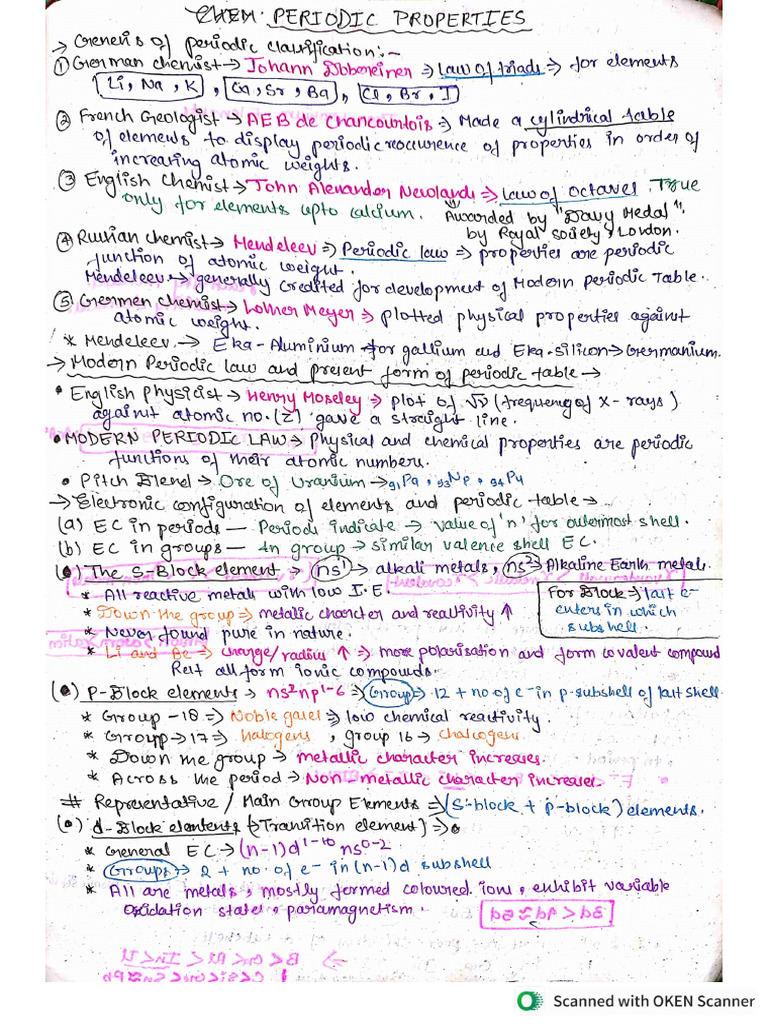 CHEM: PERIODIC PROPERTIES
→ Genesis of periodic classification:-
① German chemist → Johann Dobereiner ⇒ law of triads ⇒ for elements
Li, Na, K , Ca, Sr, Ba , Cl, Br, I
② French Geologist → AEB de Chancourtois ⇒ Made a cylindrical table
of elements to display periodic reocurence of properties in order of
increasing atomic weights.
③ English Chemist → John Alexander Newlands ⇒ law of octaves. True
only for elements upto calcium. Awarded by "Davy Medal"
by Royal society, London.
④ Russian chemist → Mendeleev ⇒ Periodic law ⇒ properties are periodic
function of atomic weight.
Mendeleev → generally credited for development of Modern periodic Table.
⑤ Germen chemist → Lother Meyer ⇒ plotted physical properties against
atomic weight.
* Mendeleev → Eka-Aluminium for gallium and Eka-silicon → Germanium.
→ Modern Periodic law and present form of periodic table →
• English Physicist → Henry Moseley ⇒ plot of √ν (frequency of X-rays)
against atomic no. (Z) gave a straight line.
• MODERN PERIODIC LAW → Physical and chemical properties are periodic
functions of their atomic numbers.
• Pitch Blend → Ore of Uranium → ₉₁Pa, ₉₃Np, ₉₄Pu
→ Electronic configuration of elements and periodic table →
(a) EC in periods — Periods indicate → value of 'n' for outermost shell.
(b) EC in groups — In group → similar valence shell EC.
(•) The S-Block element → ns¹ → alkali metals, ns² → Alkaline Earth metal.
* All reactive metals with low I.E.
For Block ⇒ last e-
enters in which
subshell.
* Down the group ⇒ metallic character and reactivity ↑
* Never found pure in nature.
* Li and Be ⇒ charge/radius ↑ ⇒ more polarisation and form covalent compound
Rest all form ionic compounds.
(•) P-Block elements → ns²np¹⁻⁶ ⇒ Group → 12 + no of e- in p-subshell of last shell
* Group-18 ⇒ Noble gases ⇒ low chemical reactivity.
* Group → 17 ⇒ halogens, group 16 → chalcogens
* Down the group → metallic character increases.
* Across the period → Non-metallic character increases.
# Representative / Main Group Elements ⇒ (S-block + p-block) elements.
(•) d-Block elements [Transition element] ⇒
* General EC → (n-1)d¹⁻¹⁰ ns⁰⁻²
* Groups → 2 + no. of e- in (n-1)d subshell
* All are metals, mostly formed coloured ions, exhibit variable
oxidation state, paramagnetism.
Scanned with OKEN Scanner